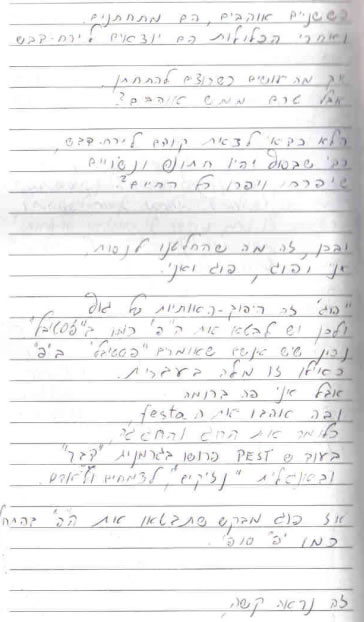 כששניים אוהבים, הם מתחתנים.
ואחרי הכלולות הם יוצאים לירח-דבש
אך מה עושים כשרוצים להתחתן,
אבל טרם ממש אוהבים?
הלא כדאי לצאת קודם לירח-דבש,
כדי שבסוף יהיו חתונה ונשואים
שיפרחו ויפרו כל החיים?
ובכן, זה מה שהחלטנו לנסות,
אני ופוג, פוג ואני.
"פוג" זה היפוך-האותיות של גוף
ולכן יש לבטא את ה"פ" כמו ב"פסטיבל".
נכון שיש אנשים שאומרים "פסטיבל" ב"פ"
כאילו זו מלה בעברית.
אבל אני פה ברומה
ובה אוהבים את ה festa,
כלומר את החג והחגיגה,
בעוד ש PEST פרושו בגרמנית "דבר"
ובאנגלית "נזיקים", לצמחים ולאדם.
אז פוג מבקש שתבטאו את ה"פ" בהתחלה
כמו "פ" סופית.
זה נראה קשה,